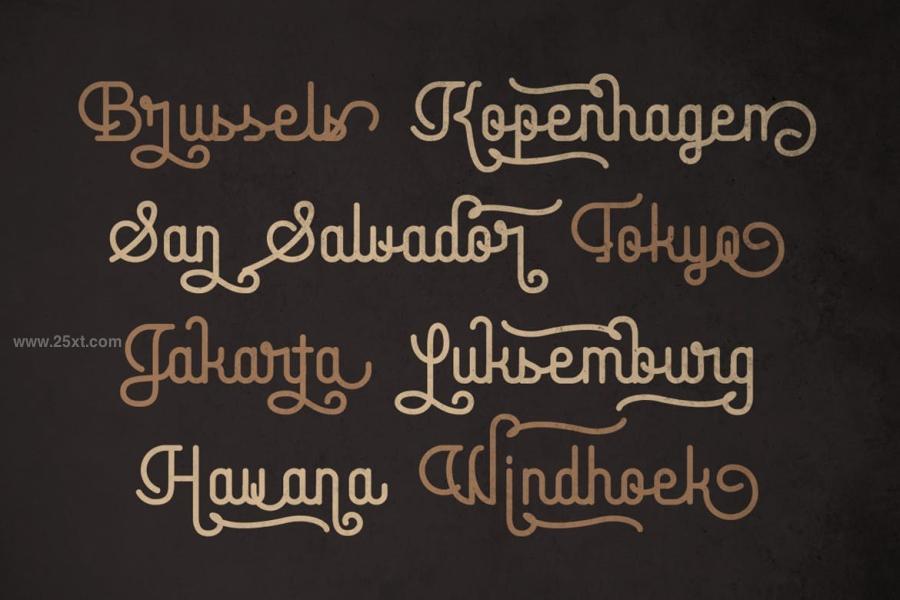 Brussels Kopenhagen
San Salvador Tokyo
www.25xt.com
Jakarta Luksemburg
Hawana Windhoek